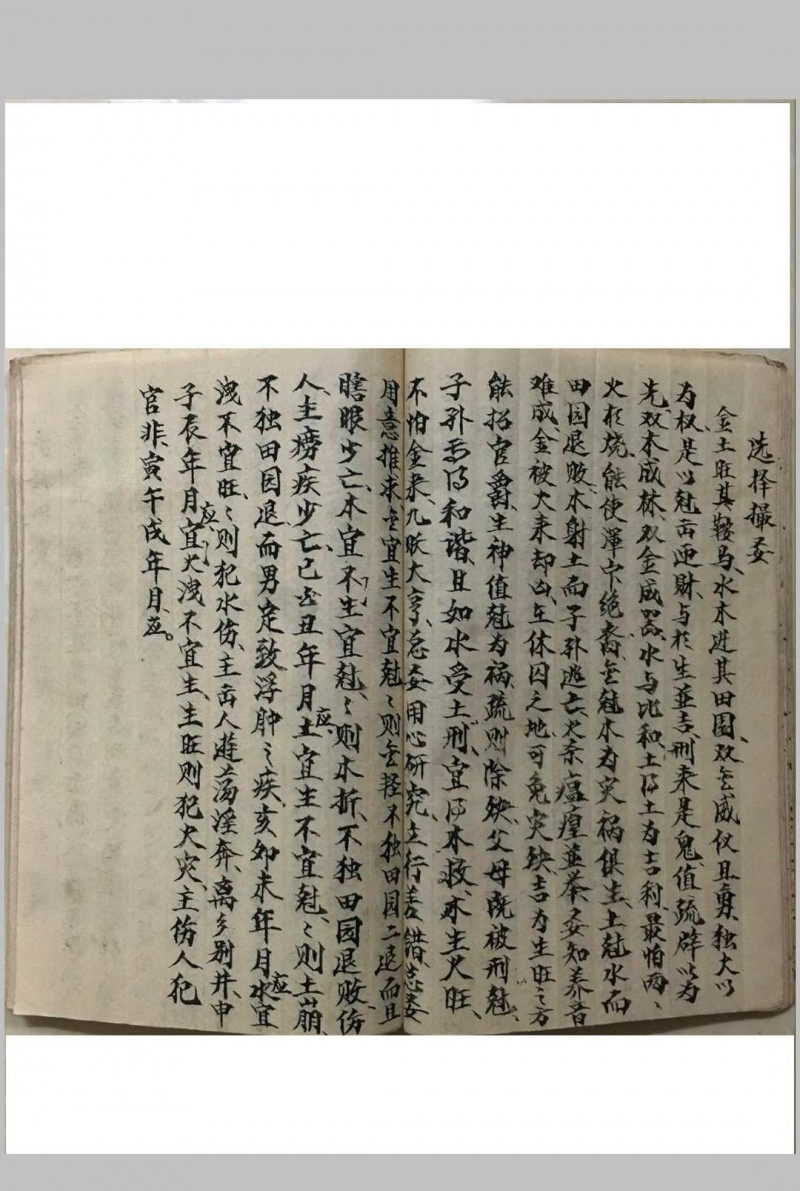 选择撮要
金土旺其鞍马、水木进其田园、双金威仪且勇、独火以
为权、是以克出迎财、与比生并吉、刑来是鬼、值疏辟以为
先、双木成林、双金成器、水与比和、土得土为吉利、最怕两
火相烧、能使浑家绝裔、金克木为灾祸俱生、土克水而
田园退败、木射土而子孙逃亡、火来瘟瘟并举、要知养音
难成、金被火来却凶、在休囚之地可免灾殃、吉为生旺之方
能招官爵、生神值克为祸、疏则除殃、父母既被刑克、
子孙而得和谐、且如水受土刑、宜得木救、木生火旺、
不怕金来、凡旺大亨、总要用心研究、立行善错志要
用意推求、金宜生不宜克、克则金轻、不独田园之退而且
瞎眼少亡、木宜不生宜克、克则木折、不独田园退败、伤
人、主痨疾少亡、巳酉丑年月应、土宜生不宜克、克则土崩、
不独田园退、而男定致浮肿之疾、亥卯未年月应、水宜
洩不宜旺、旺则犯水伤、主出人游荡淫奔、离乡别井、申
子辰年月应、宜火洩不宜生、生旺则犯火灾、主伤人犯
官非、寅午戌年月应。